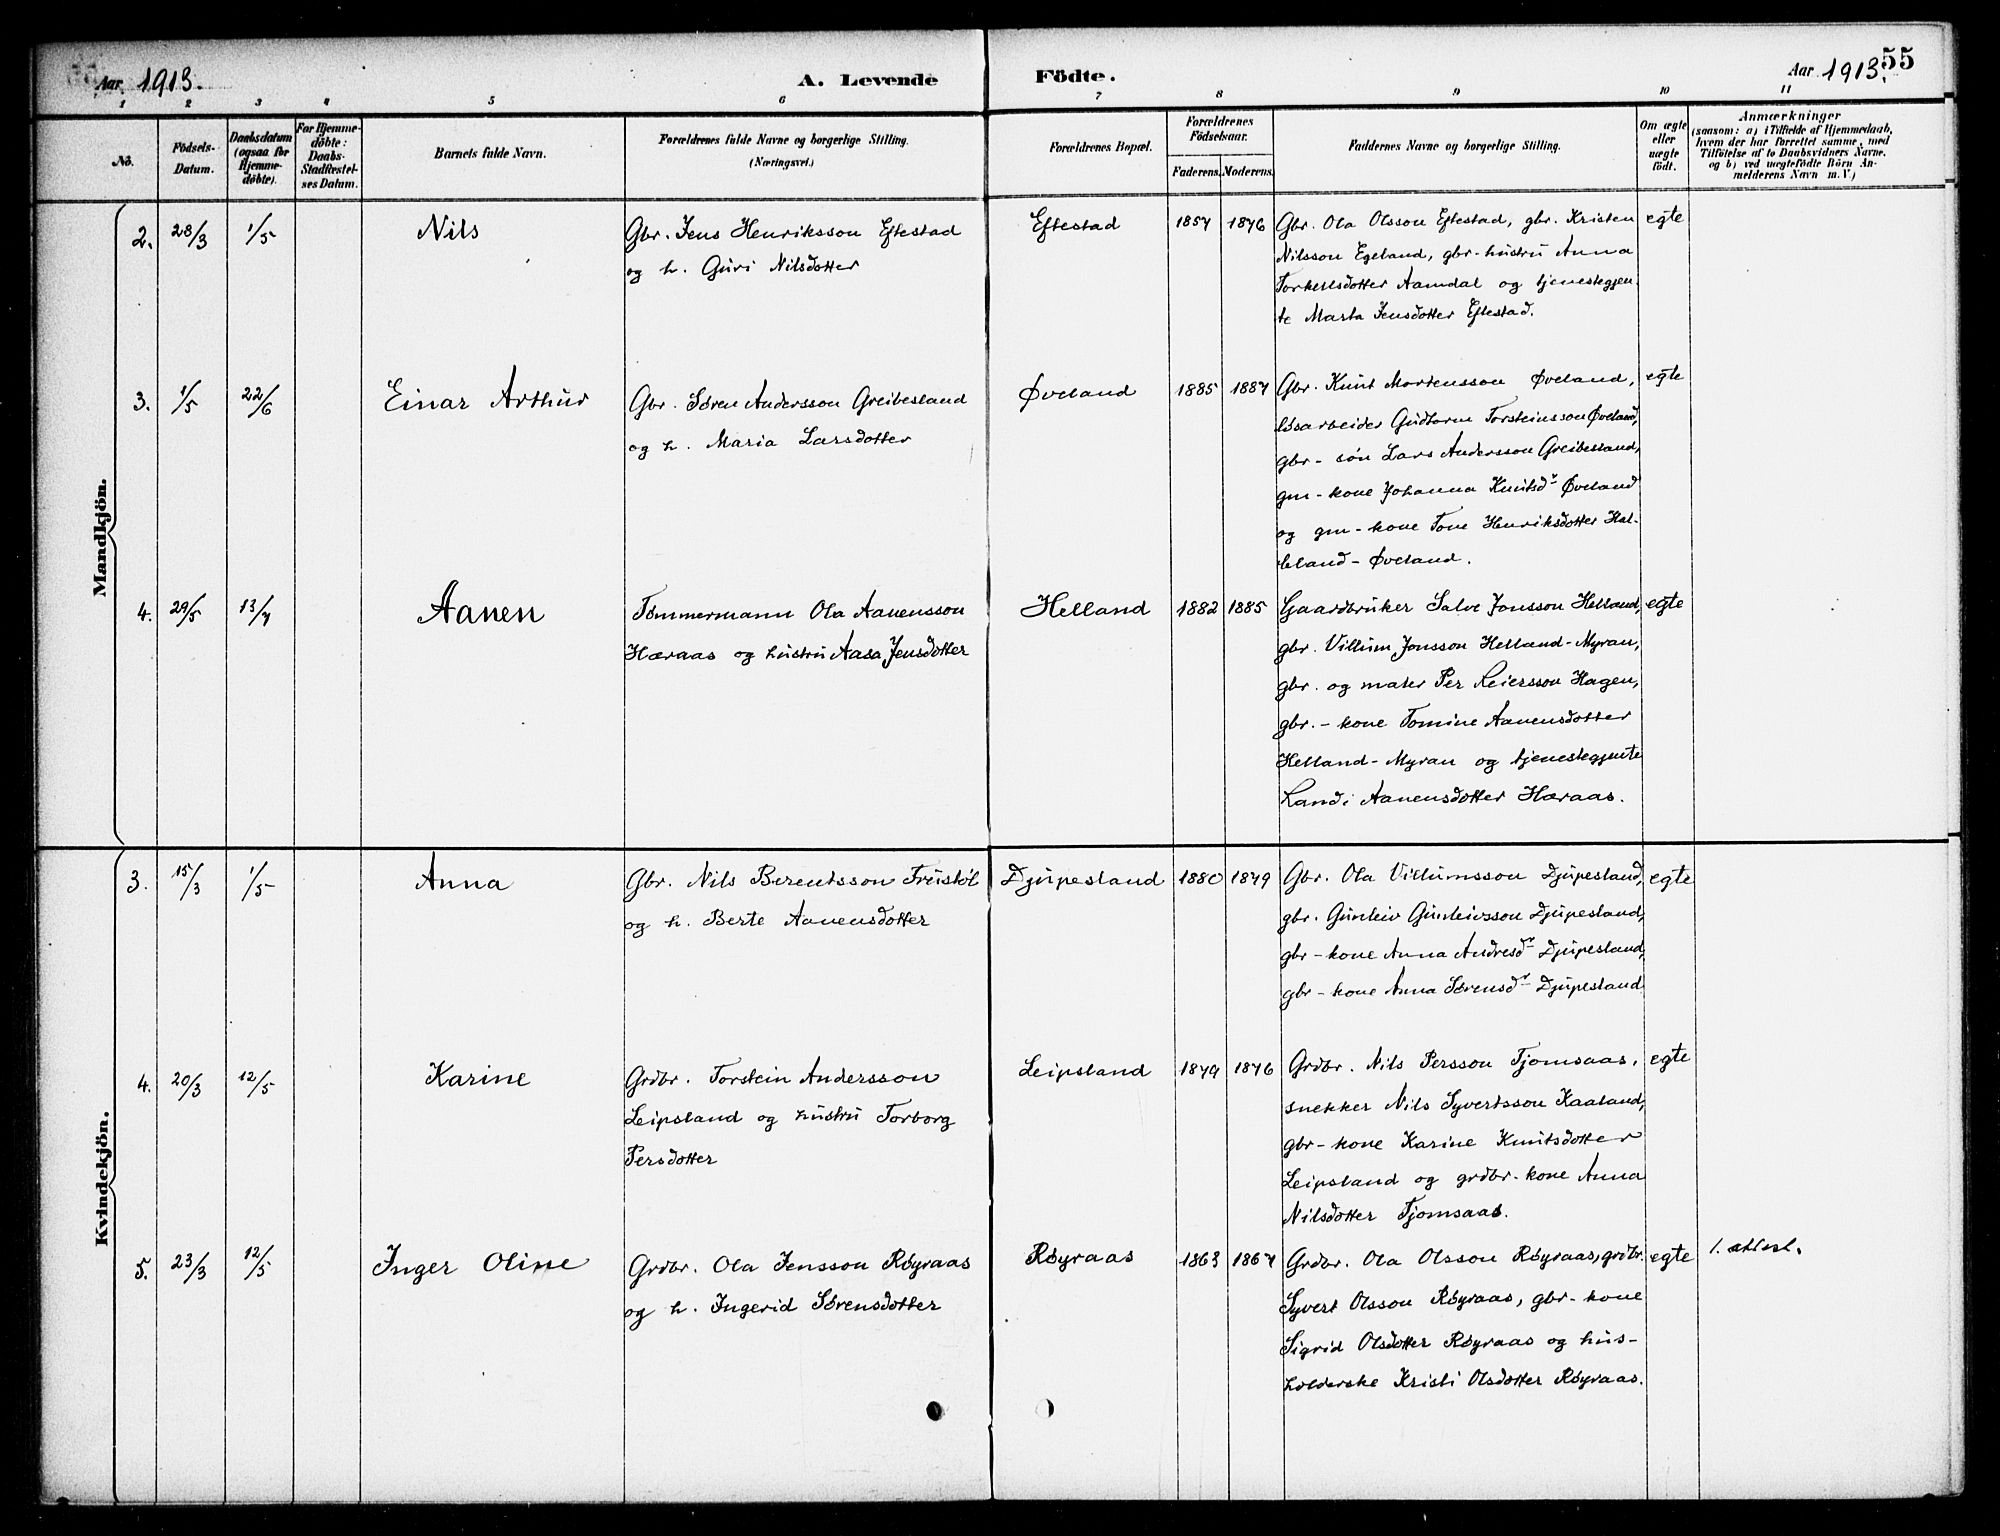 Aar 1913.
A. Levende
Födte.
Aar 1913.
55
1 2 3 4 5 6 7 8 9 10 11
No.
Födsels-Datum.
Daabsdatum (ogsaa for Hjemme-döbte).
For Hjemme-döbte: Daabs-Stadfæstel-ses Datum.
Barnets fulde Navn.
Forældrenes fulde Navne og borgerlige Stilling. (Næringsvei.)
Forældrenes Bopæl.
Forældrenes Födselsaar.
Faderens. Moderens.
Faddernes Navne og borgerlige Stilling.
Om ægte eller uægte födt.
Anmærkninger
(saasom: a) i Tilfælde af Hjemmedaab,
hvem der har forrettet samme, med
Tilföielse af to Daabsvidners Navne,
og b) ved uægtefödte Börn An-
melderens Navn m. V.)
Mandkjön.
2. 28/3 1/5 Nils
Gbr. Jens Henriksson Eftestad
og h. Guri Nilsdotter
Eftestad 1857 1876
Gbr. Ola Olsson Eftestad, gbr. Kristen
Nilsson Egeland, gbr-hustru Anna
Torkellsdotter Aamdal og tjenestegjen-
te Marta Jensdotter Eftestad.
egte
3. 1/5 22/6 Einar Arthur
Gbr. Søren Andersson Greibesland
og h. Maria Larsdotter
Øveland 1885 1887
Gbr. Knut Mortensson Øveland,
løsarbeider Gudtorm Torsteinsson Øveland,
gbr-søn Lars Andersson Greibesland,
gm-kone Johanna Knutsdr Øveland
og gm-kone Tone Henriksdotter Hal-
leland-Øveland.
egte
4. 29/5 13/7 Aanen
Tømmermann Ola Aanensson
Hæraas og hustru Aasa Jensdotter
Helland 1882 1885
Gaardbruker Salve Jonsson Helland,
gbr. Villum Jonsson Helland-Myran,
gbr. og maler Per Reiersson Hagen,
gbr.-kone Tomine Aanensdotter
Helland-Myran og tjenestegjente
Randi Aanensdotter Hæraas.
egte
Kvindekjön.
3. 15/3 1/5 Anna
Gbr. Nils Berentsson Frustøl
og h. Berte Aanensdotter
Djupesland 1880 1879
Gbr. Ola Villumsson Djupesland,
gbr. Gunleiv Gunleivsson Djupesland,
gbr-kone Anna Andresdr Djupesland,
gbr-kone Anna Sørensdr Djupesland
egte
4. 20/3 12/5 Karine
Grdbr. Torstein Andersson
Leipsland og hustru Torborg
Persdotter
Leipsland 1879 1876
Grdbr. Nils Persson Tjomsaas,
snekker Nils Syvertsson Kaaland,
gbr-kone Karine Knutsdotter
Leipsland og grdbr.-kone Anna
Nilsdotter Tjomsaas.
egte
5. 23/3 12/5 Inger Oline
Grdbr. Ola Jensson Røyraas
og h. Ingerid Sørensdotter
Røyraas 1863 1867
Grdbr. Ola Olsson Røyraas, grdbr.
Syvert Olsson Røyraas, gbr-kone
Sigrid Olsdotter Røyraas og hus-
holderske Kristi Olsdotter Røyraas.
egte
1. attest.